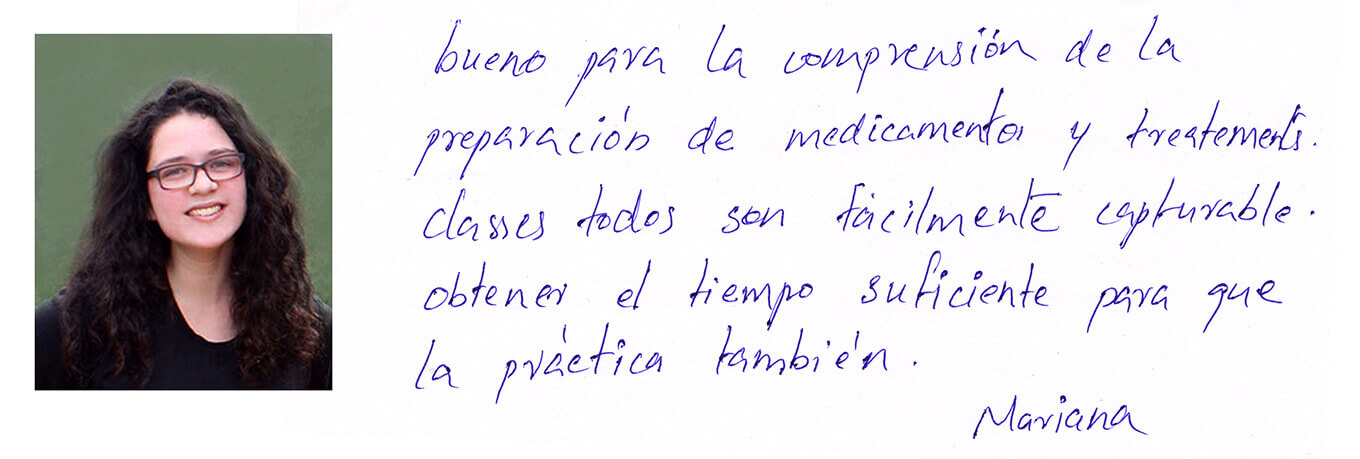 bueno para la comprensión de la
preparación de medicamentos y treatements.
classes todos son fácilmente capturable.
obtener el tiempo suficiente para que
la práctica también.
Mariana